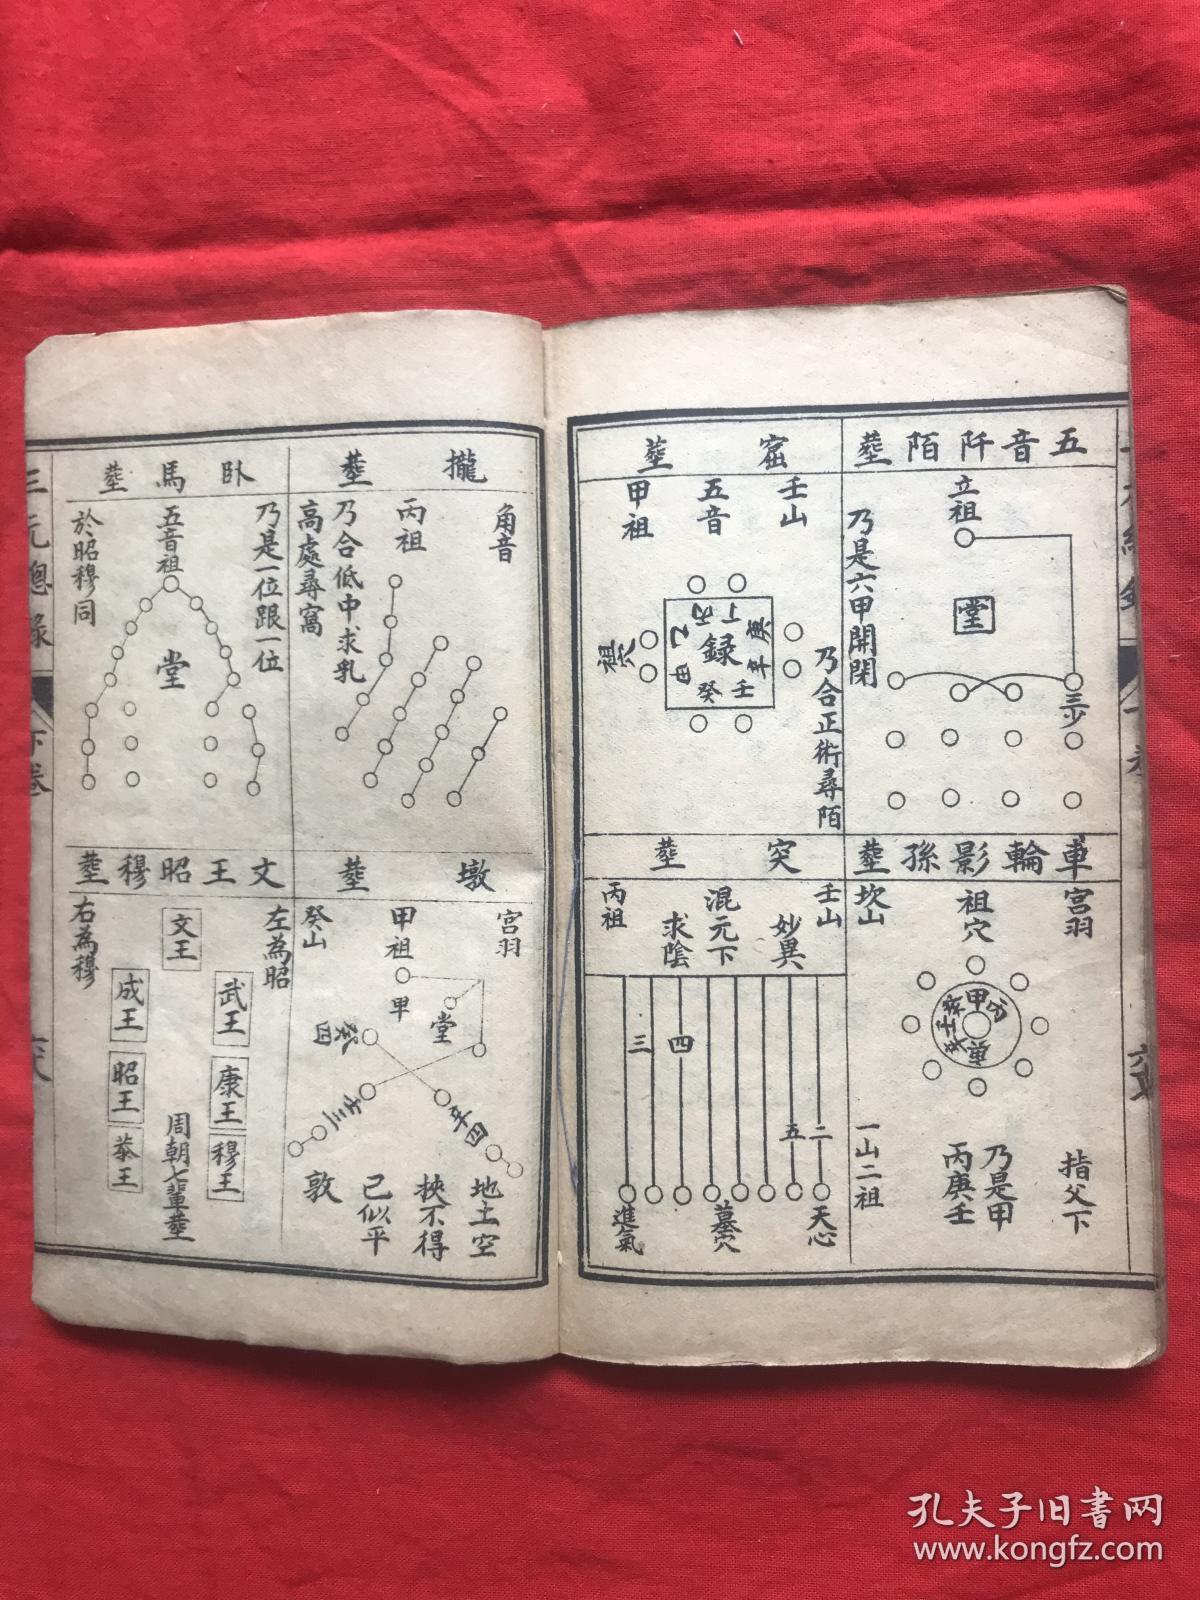 五音阡陌塟
立祖
堂
三步
乃是六甲開閉
窟塟
壬山
五音
甲祖
丁丙
乙
庚
録
辛
甲
癸壬
祖穴
乃合正術尋陌
車輪影孫塟
宮羽
祖穴
坎山
甲
指父下
乃是甲
丙庚壬
一山二祖
突塟
壬山
妙異
混元下
求陰
丙祖
三
四
五
二
天心
墓穴
進氣
攏塟
角音
丙祖
乃合低中求乳
高處尋窩
臥馬塟
乃是一位跟一位
五音祖
堂
於昭穆同
墩塟
宮羽
甲祖
癸山
甲
堂
癸四
壬三
辛四
地土空
挾不得
己似平
敦
文王昭穆塟
左為昭
文王
右為穆
武王
成王
康王
昭王
穆王
恭王
周朝七輩塟
三元總錄
下卷
孔夫子旧书网
www.kongfz.com